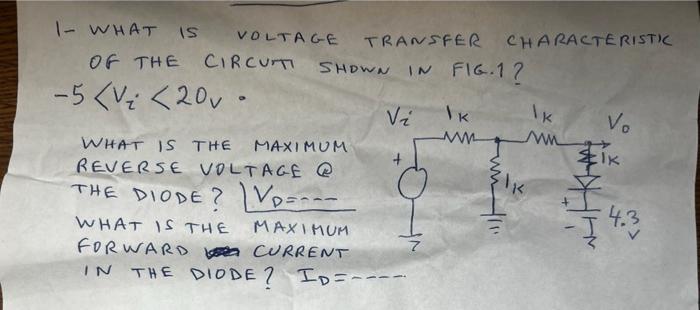 1- WHAT IS VOLTAGE TRANSFER CHARACTERISTIC
OF THE CIRCUTI SHOWN IN FIG.1?
-5 <Vi <20v.
WHAT IS THE MAXIMUM
REVERSE VOLTAGE @
THE DIODE? VD=----
WHAT IS THE MAXIMUM
FORWARD CURRENT
IN THE DIODE? ID=----
Vi 1K 1K Vo
+ 1K
1K
+
- 4.3
V